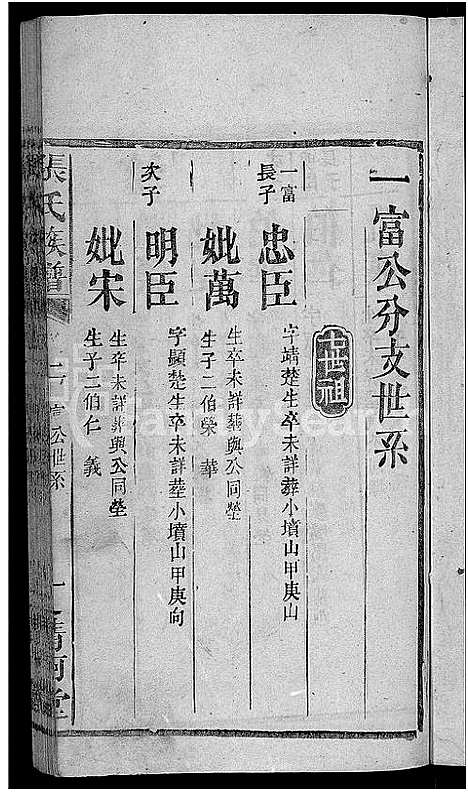 一富公分支世系
十世祖
一富
長子
忠臣
字靖楚生卒未詳葬小墳山甲庚山
妣萬
生卒未詳葬與公同塋
生子二伯榮 華
次子
明臣
字顯楚生卒未詳葬小墳山甲庚向
妣宋
生卒未詳葬與公同塋
生子二伯仁 義
張氏族譜
一富公世系
清河堂